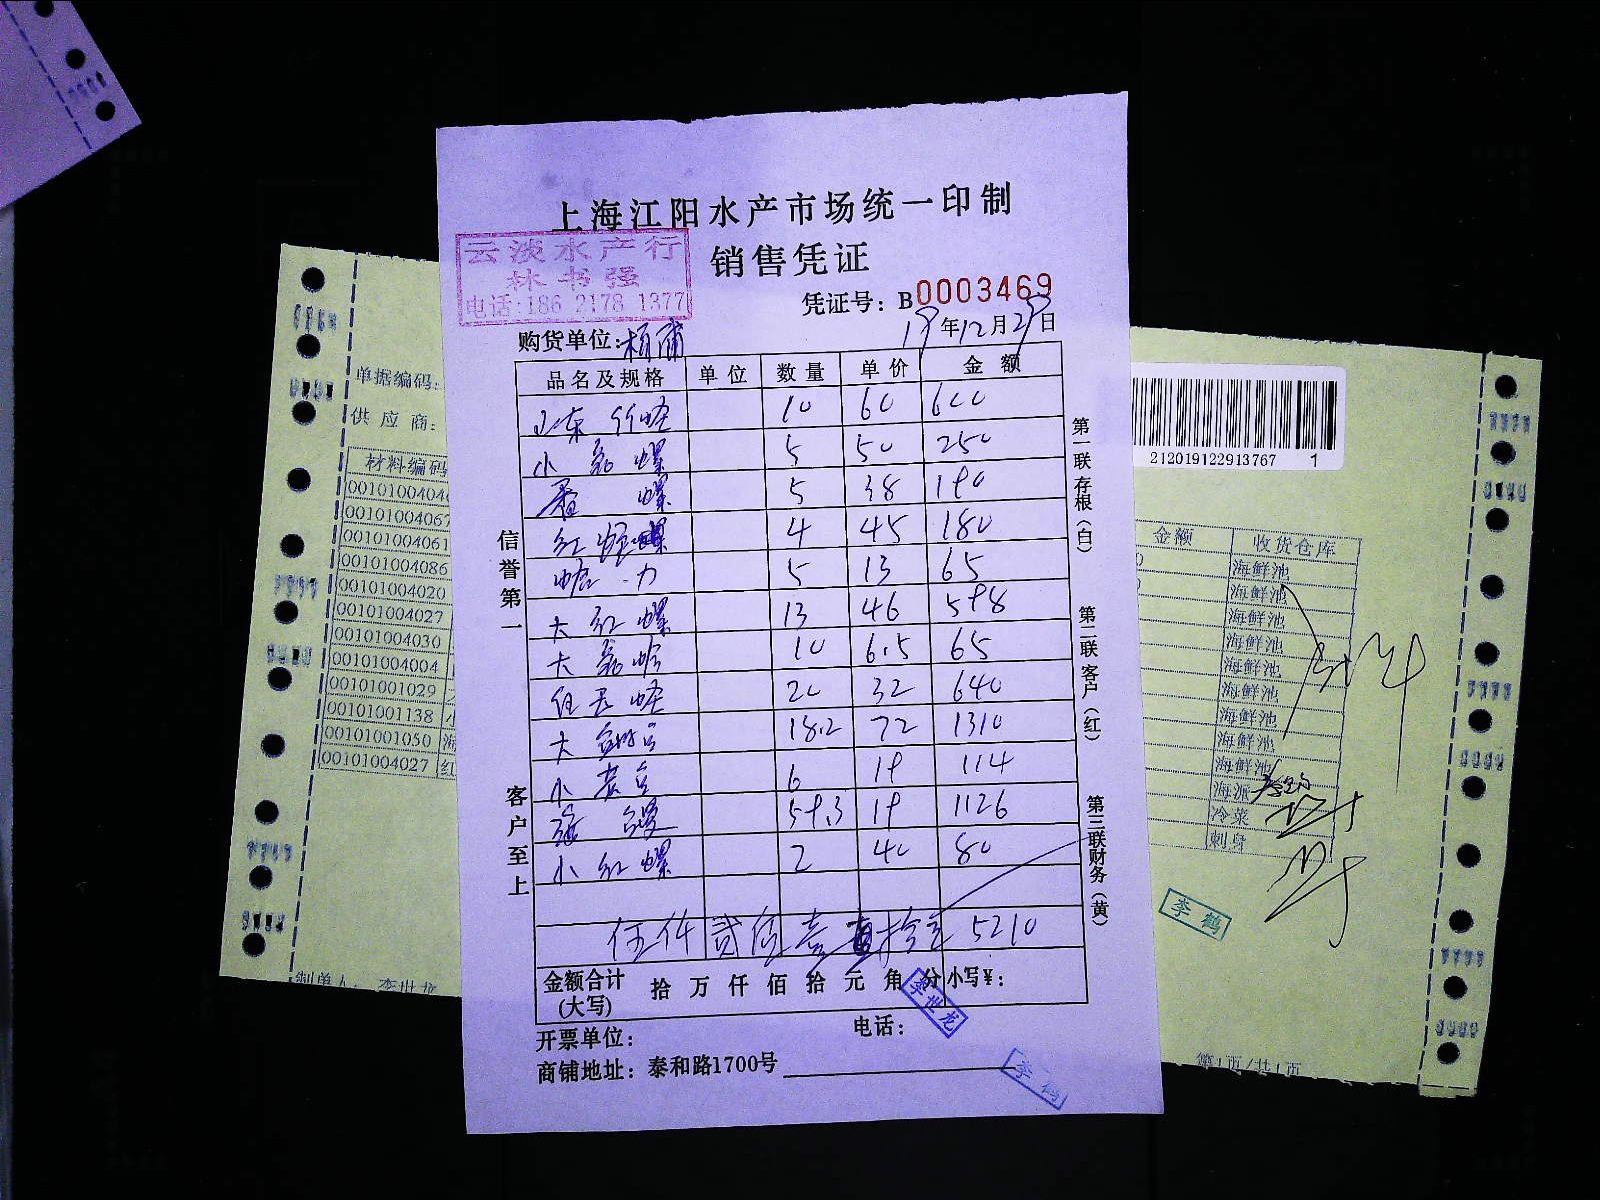 上海江阳水产市场统一印制
销售凭证
云淡水产行
林书强
电话:186 2178 1377
凭证号：B0003469
购货单位: 19年12月29日
品名及规格 单位 数量 单价 金额
山东 竹蛏 10 60 600
小 螺 5 50 250
螺 5 38 190
红 螺 4 45 180
5 13 65
大 红 螺 13 46 598
大 10 6.5 65
蛏 20 32 640
大 18.2 72 1310
小 6 19 114
59.3 19 1126
小 红 螺 2 40 80
伍仟贰佰壹拾元 5210
金额合计(大写) 拾 万 仟 佰 拾 元 角 分 小写¥:
李世龙
开票单位: 电话:
商铺地址：泰和路1700号
李鹤
信誉第一
客户至上
第一联存根(白)
第二联客户(红)
第三联财务(黄)
单据编码:
供应商:
材料编码
0010100404
00101004067
00101004061
00101004086
00101004020
00101004027
00101004030
00101004004
00101001029
00101001138 小
00101001050 海
00101004027 红
制单人: 李世龙
212019122913767 1
金额 收货仓库
海鲜池
海鲜池
海鲜池
海鲜池
海鲜池
海鲜池
海鲜池
海鲜池
海鲜池
海派
冷菜
刺身
李鹤
第1页/共1页